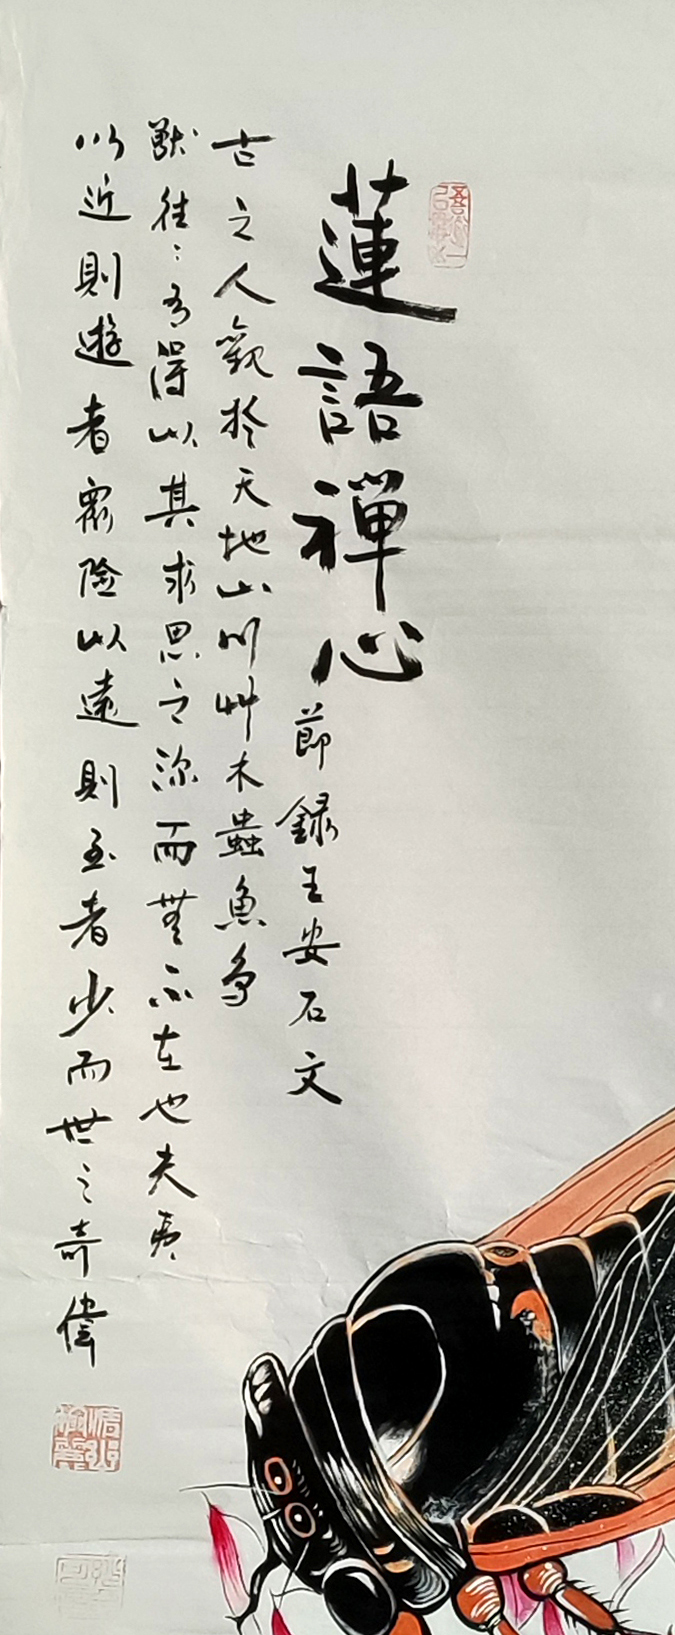 蓮語禪心
節錄王安石文
古之人觀於天地山川艸木蟲魚鳥
獸往〻有得以其求思之深而無不在也夫夷
以近則遊者眾險以遠則至者少而世之奇偉